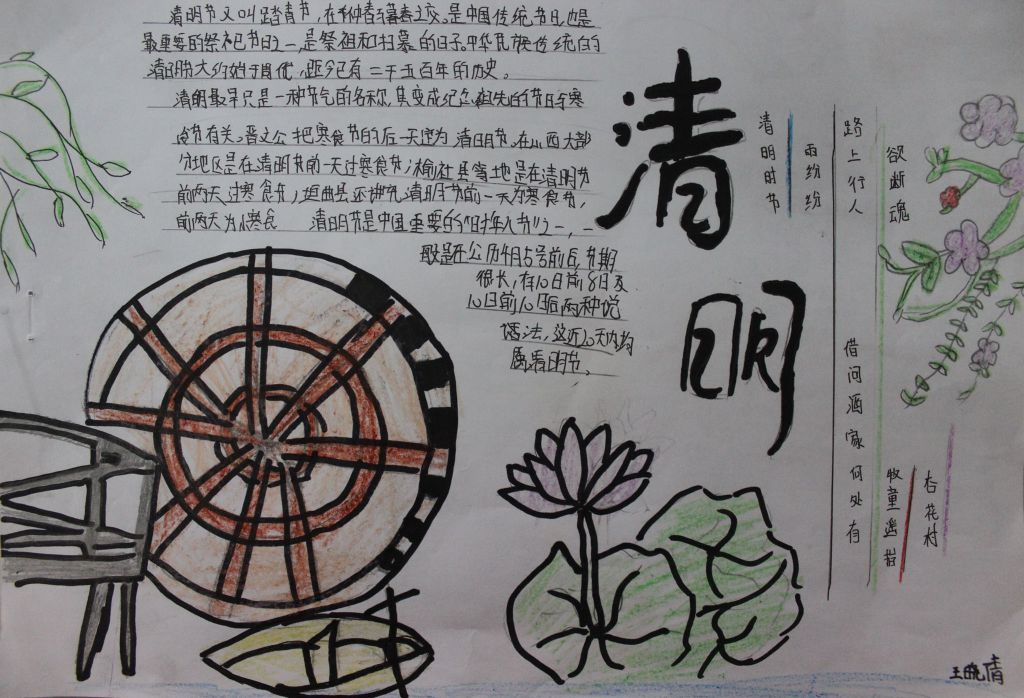 清明节又叫踏青节,在仲春与暮春之交。是中国传统节日,也是
最重要的祭祀节日之一,是祭祖和扫墓的日子。中华民族传统的
清明节大约始于周代,距今已有二千五百年的历史。
清明最早只是一种节气的名称,其变成纪念祖先的节日与寒
食节有关。晋文公把寒食节的后一天定为清明节。在山西大部
分地区是在清明节前一天过寒食节;榆社县等地是在清明节
前两天过寒食节;垣曲县还讲究清明节前一天为寒食节,
前两天为小寒食 清明节是中国重要的"时年八节"之一,一
般是在公历4月5号前后,节期
很长,有10日前8日及
10日前10日后两种说
法,这近20天内均
属清明节。
清明
清明时节
雨纷纷
路上行人
欲断魂
借问酒家何处有
牧童遥指
杏花村
王晓倩